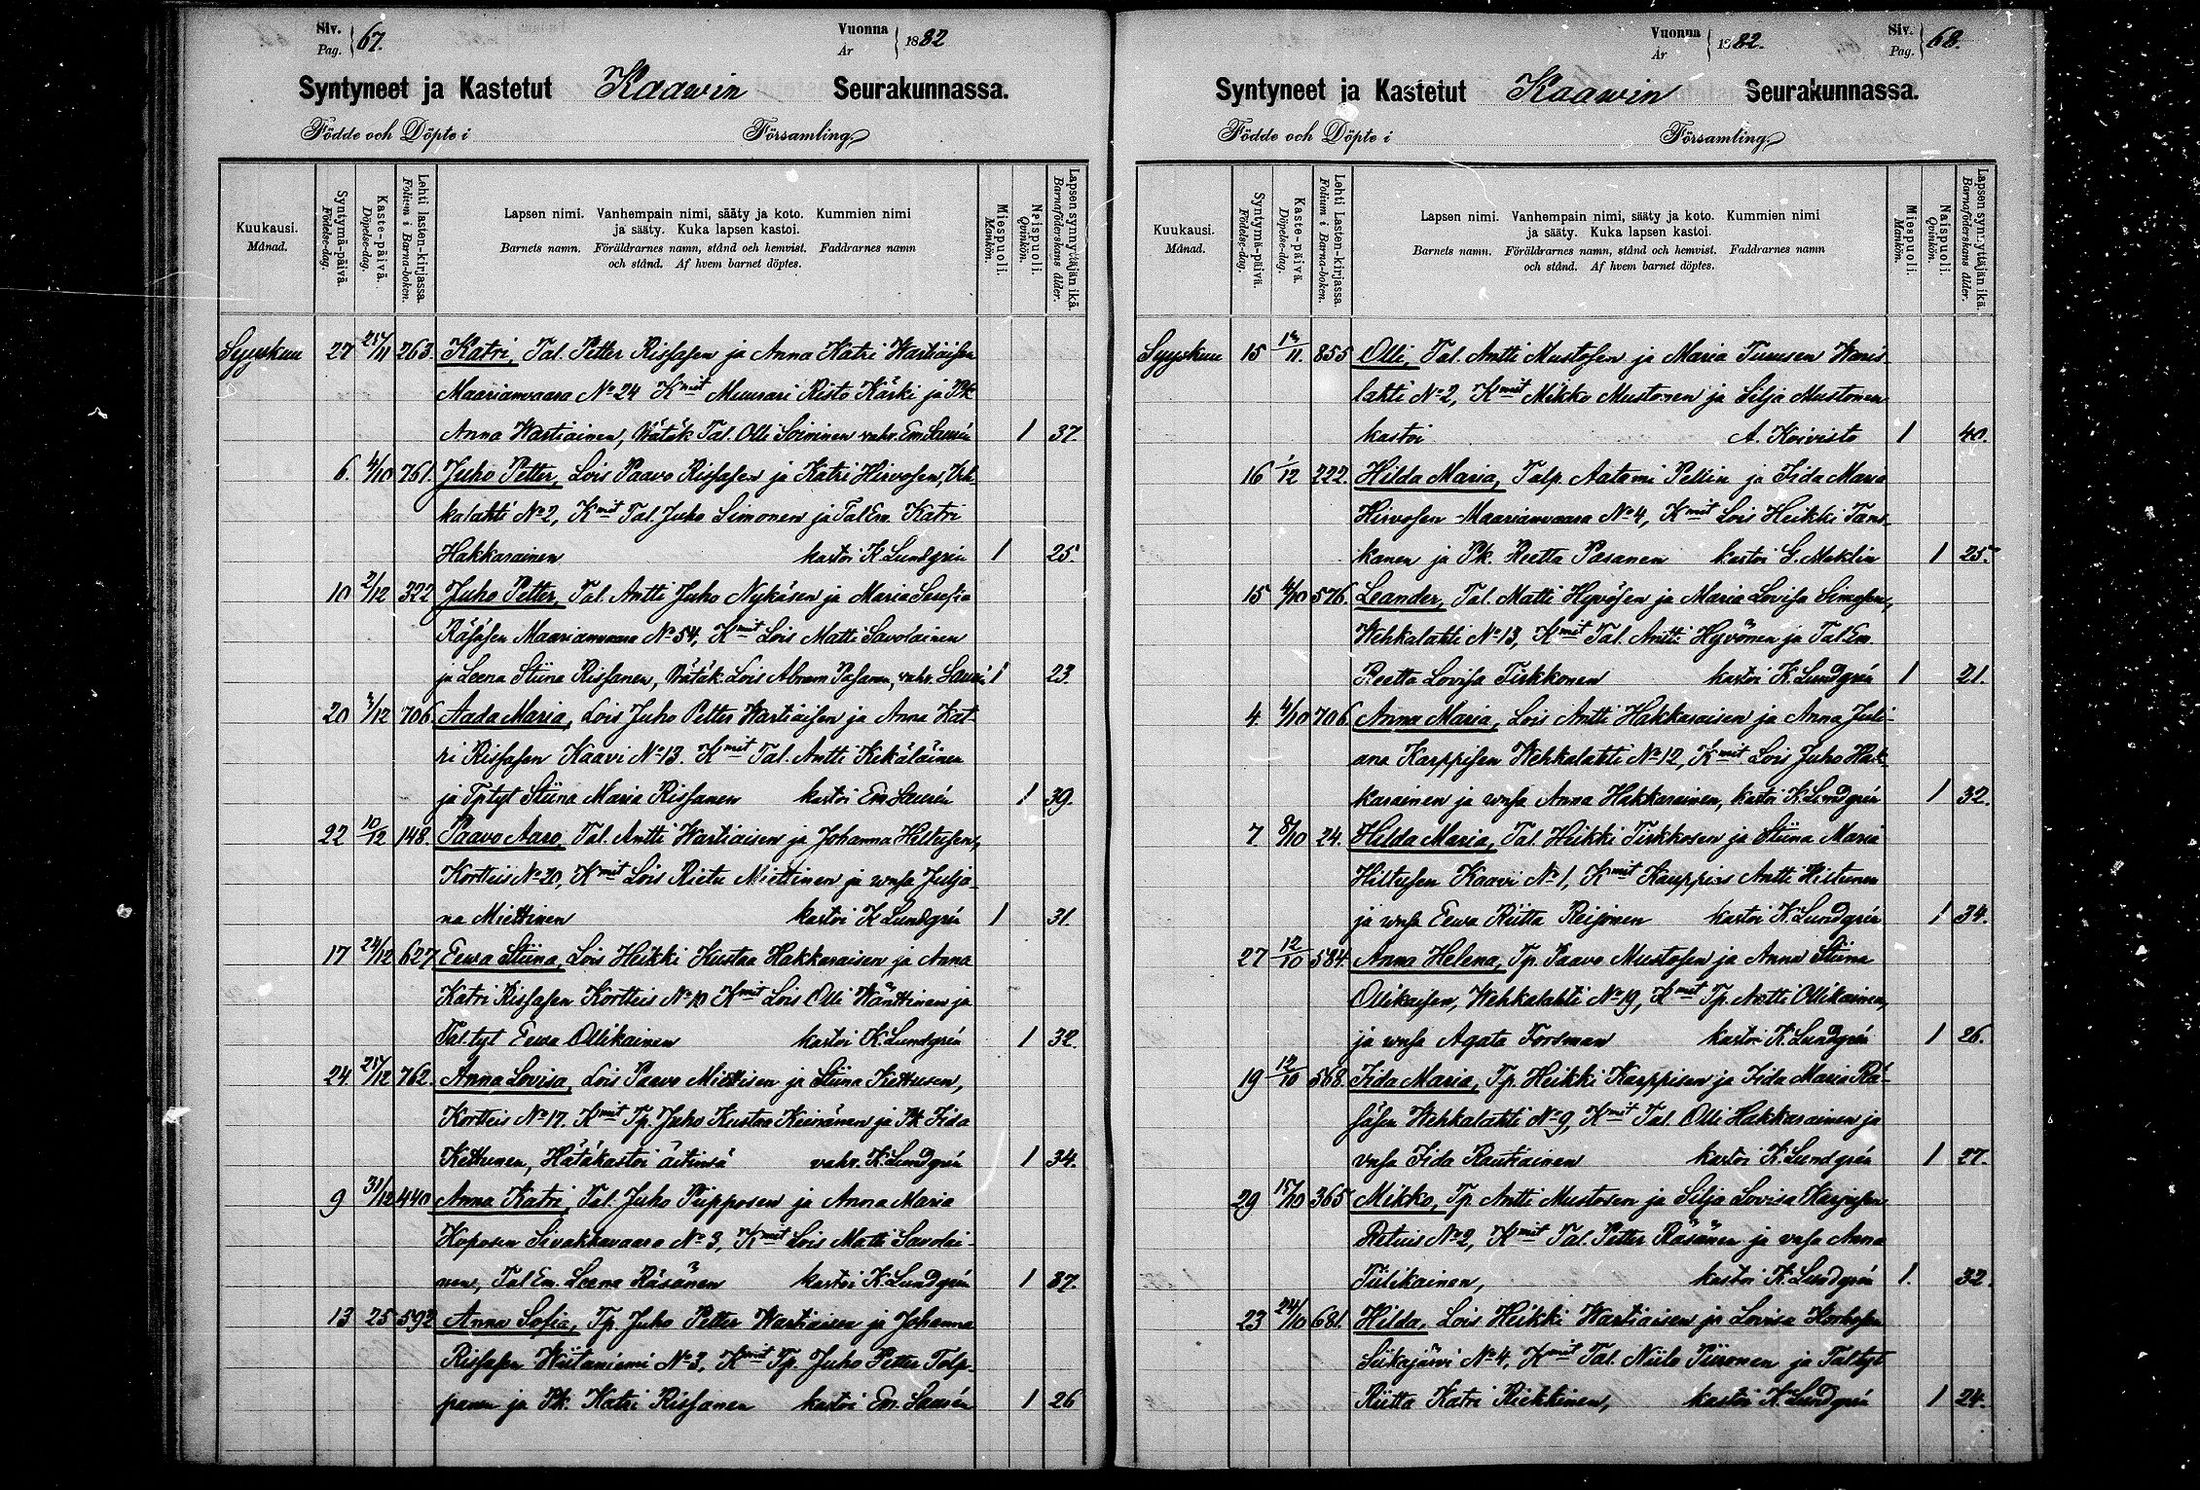 Siv. Pag. 67. Vuonna År 1882
Syntyneet ja Kastetut Kaawin Seurakunnassa.
Födde och Döpte i Församling
Kuukausi. Månad.
Syntymä-päivä. Födelse-dag.
Kaste-päivä. Döpelse-dag.
Lehti lasten-kirjassa. Folium i Barna-boken.
Lapsen nimi. Vanhempain nimi, sääty ja koto. Kummien nimi
ja sääty. Kuka lapsen kastoi.
Barnets namn. Föräldrarnes namn, stånd och hemvist. Faddrarnes namn
och stånd. Af hvem barnet döptes.
Miespuoli. Mankön.
Naispuoli. Qvinkön.
Lapsen synnyttäjän ikä. Barnaföderskans ålder.
Syyskuu 27 /11 263. Katri, Tal. Petter Rissasen ja Anna Katri Wartiaisen
Maarianvaara No 24 Kmit Muurari Risto Kärki ja Pk
Anna Wartiainen, Hätäk Tal. Olli Soininen vahv. Em. Laurén 1 37.
6. 4/10 761. Juho Petter, Lois Paavo Rissasen ja Katri Hirvosen, Weh-
kalahti No 2, Kmit Tal. Juho Simonen ja Tal Em. Katri
Hakkarainen kastoi K Lundgrén 1 25.
10 2/12 322 Juho Petter, Tal. Antti Juho Nykäsen ja Maria Sosefia
Räsäsen Maarianvaara No 54, Kmit Lois Matti Savolainen
ja Leena Stiina Rissanen, Hätäk. Lois Abram Pasanen, vahv. Laurén 1 23.
20 3/12 706 Aada Maria, Lois Juho Petter Wartiaisen ja Anna Kat-
ri Rissasen Kaavi No 13. Kmit Tal. Antti Kekäläinen
ja Tptyt Stiina Maria Rissanen kastoi Em Laurén 1 39.
22 10/12 148. Paavo Aaro, Tal. Antti Wartiaisen ja Johanna Hiltusen,
Kortteis No 20, Kmit Lois Rietu Miettinen ja vmsa Julja-
na Miettinen kastoi K Lundgrén 1 31.
17 24/12 627 Eewa Stiina, Lois Heikki Kustaa Hakkaraisen ja Anna
Katri Rissasen Kortteis No 10 Kmit Lois Olli Wänttinen ja
Tal.tyt Eewa Ollikainen kastoi K. Lundgrén 1 32.
24. 25/12 762. Anna Lovisa, Lois Paavo Miettisen ja Stiina Kettusen,
Kortteis No 17. Kmit Tp. Juho Kustaa Keinänen ja Pk Iida
Kettunen, Hätäkastoi äitinsä vahv. K. Lundgrén 1 34.
9 31/12 440 Anna Katri, Tal. Juho Piipposen ja Anna Maria
Koposen Sivakkavaara No 3, Kmit Lois Matti Savolai-
nen, Tal Em. Leena Räsänen kastoi K. Lundgrén 1 37.
13 25 592 Anna Sofia, Tp. Juho Petter Wartiaisen ja Johanna
Rissasen Wiitaniemi No 3, Kmit Tp. Juho Petter Tolp-
panen ja Pk. Katri Rissanen kastoi Em. Laurén 1 26
Vuonna År 1882. Siv. Pag. 68.
Syntyneet ja Kastetut Kaawin Seurakunnassa.
Födde och Döpte i Församling
Kuukausi. Månad.
Syntymä-päivä. Födelse-dag.
Kaste-päivä. Döpelse-dag.
Lehti lasten-kirjassa. Folium i Barna-boken.
Lapsen nimi. Vanhempain nimi, sääty ja koto. Kummien nimi
ja sääty. Kuka lapsen kastoi.
Barnets namn. Föräldrarnes namn, stånd och hemvist. Faddrarnes namn
och stånd. Af hvem barnet döptes.
Miespuoli. Mankön.
Naispuoli. Qvinkön.
Lapsen synnyttäjän ikä. Barnaföderskans ålder.
Syyskuu 15 /11. 855 Olli, Tal. Antti Mustosen ja Maria Turusen Wanis
lahti No 2, Kmit Mikko Mustonen ja Silja Mustonen
kastoi A. Koivisto 1 40.
16 1/12 222. Hilda Maria, Talp. Aatami Pellin ja Iida Maria
Hirvosen Maarianvaara No 4, Kmit Lois Heikki Tans-
kanen ja Pk. Reetta Pasanen kastoi G. Meklin 1 25.
15 4/10 576. Leander, Tal. Matti Hyvösen ja Maria Lovisa Simosen,
Wehkalahti No 13, Kmit Tal. Antti Hyvönen ja Tal Em.
Reetta Lovisa Tirkkonen kastoi K. Lundgrén 1 21.
4. 4/10 706. Anna Maria, Lois Antti Hakkaraisen ja Anna Juli-
ana Karppisen Wehkalahti No 12, Kmit Lois Juho Hak-
karainen ja vmsa Anna Hakkarainen, kastoi K. Lundgrén 1 32.
7 8/10 24. Hilda Maria, Tal. Heikki Tirkkosen ja Stiina Maria
Hiltusen Kaavi No 1, Kmit Kauppias Antti Hiltunen
ja vmsa Eewa Riitta Reijonen kastoi K. Lundgrén 1 34.
27 12/10 584. Anna Helena, Tp. Paavo Mustosen ja Anna Stiina
Ollikaisen, Wehkalahti No 19, Kmit Tp. Antti Ollikainen,
ja vmsa Agata Forsman kastoi K. Lundgrén 1 26.
19 12/10 568. Iida Maria, Tp. Heikki Karppisen ja Iida Maria Rä-
säsen Wehkalahti No 9, Kmit Tal. Olli Hakkarainen ja
vmsa Iida Rautiainen kastoi K. Lundgrén 1 27.
29 15/10 365 Mikko, Tp. Antti Mustosen ja Silja Lovisa Karppisen
Retuis No 2, Kmit Tal. Petter Räsänen ja vmsa Anna
Tiilikainen, kastoi K. Lundgrén 1. 32.
23 24/10 681. Hilda, Lois Heikki Wartiaisen ja Lovisa Korhosen
Siikajärvi No 4, Kmit Tal. Niilo Piironen ja Tal tyt
Riitta Katri Riekkinen, kastoi K. Lundgrén 1 24.